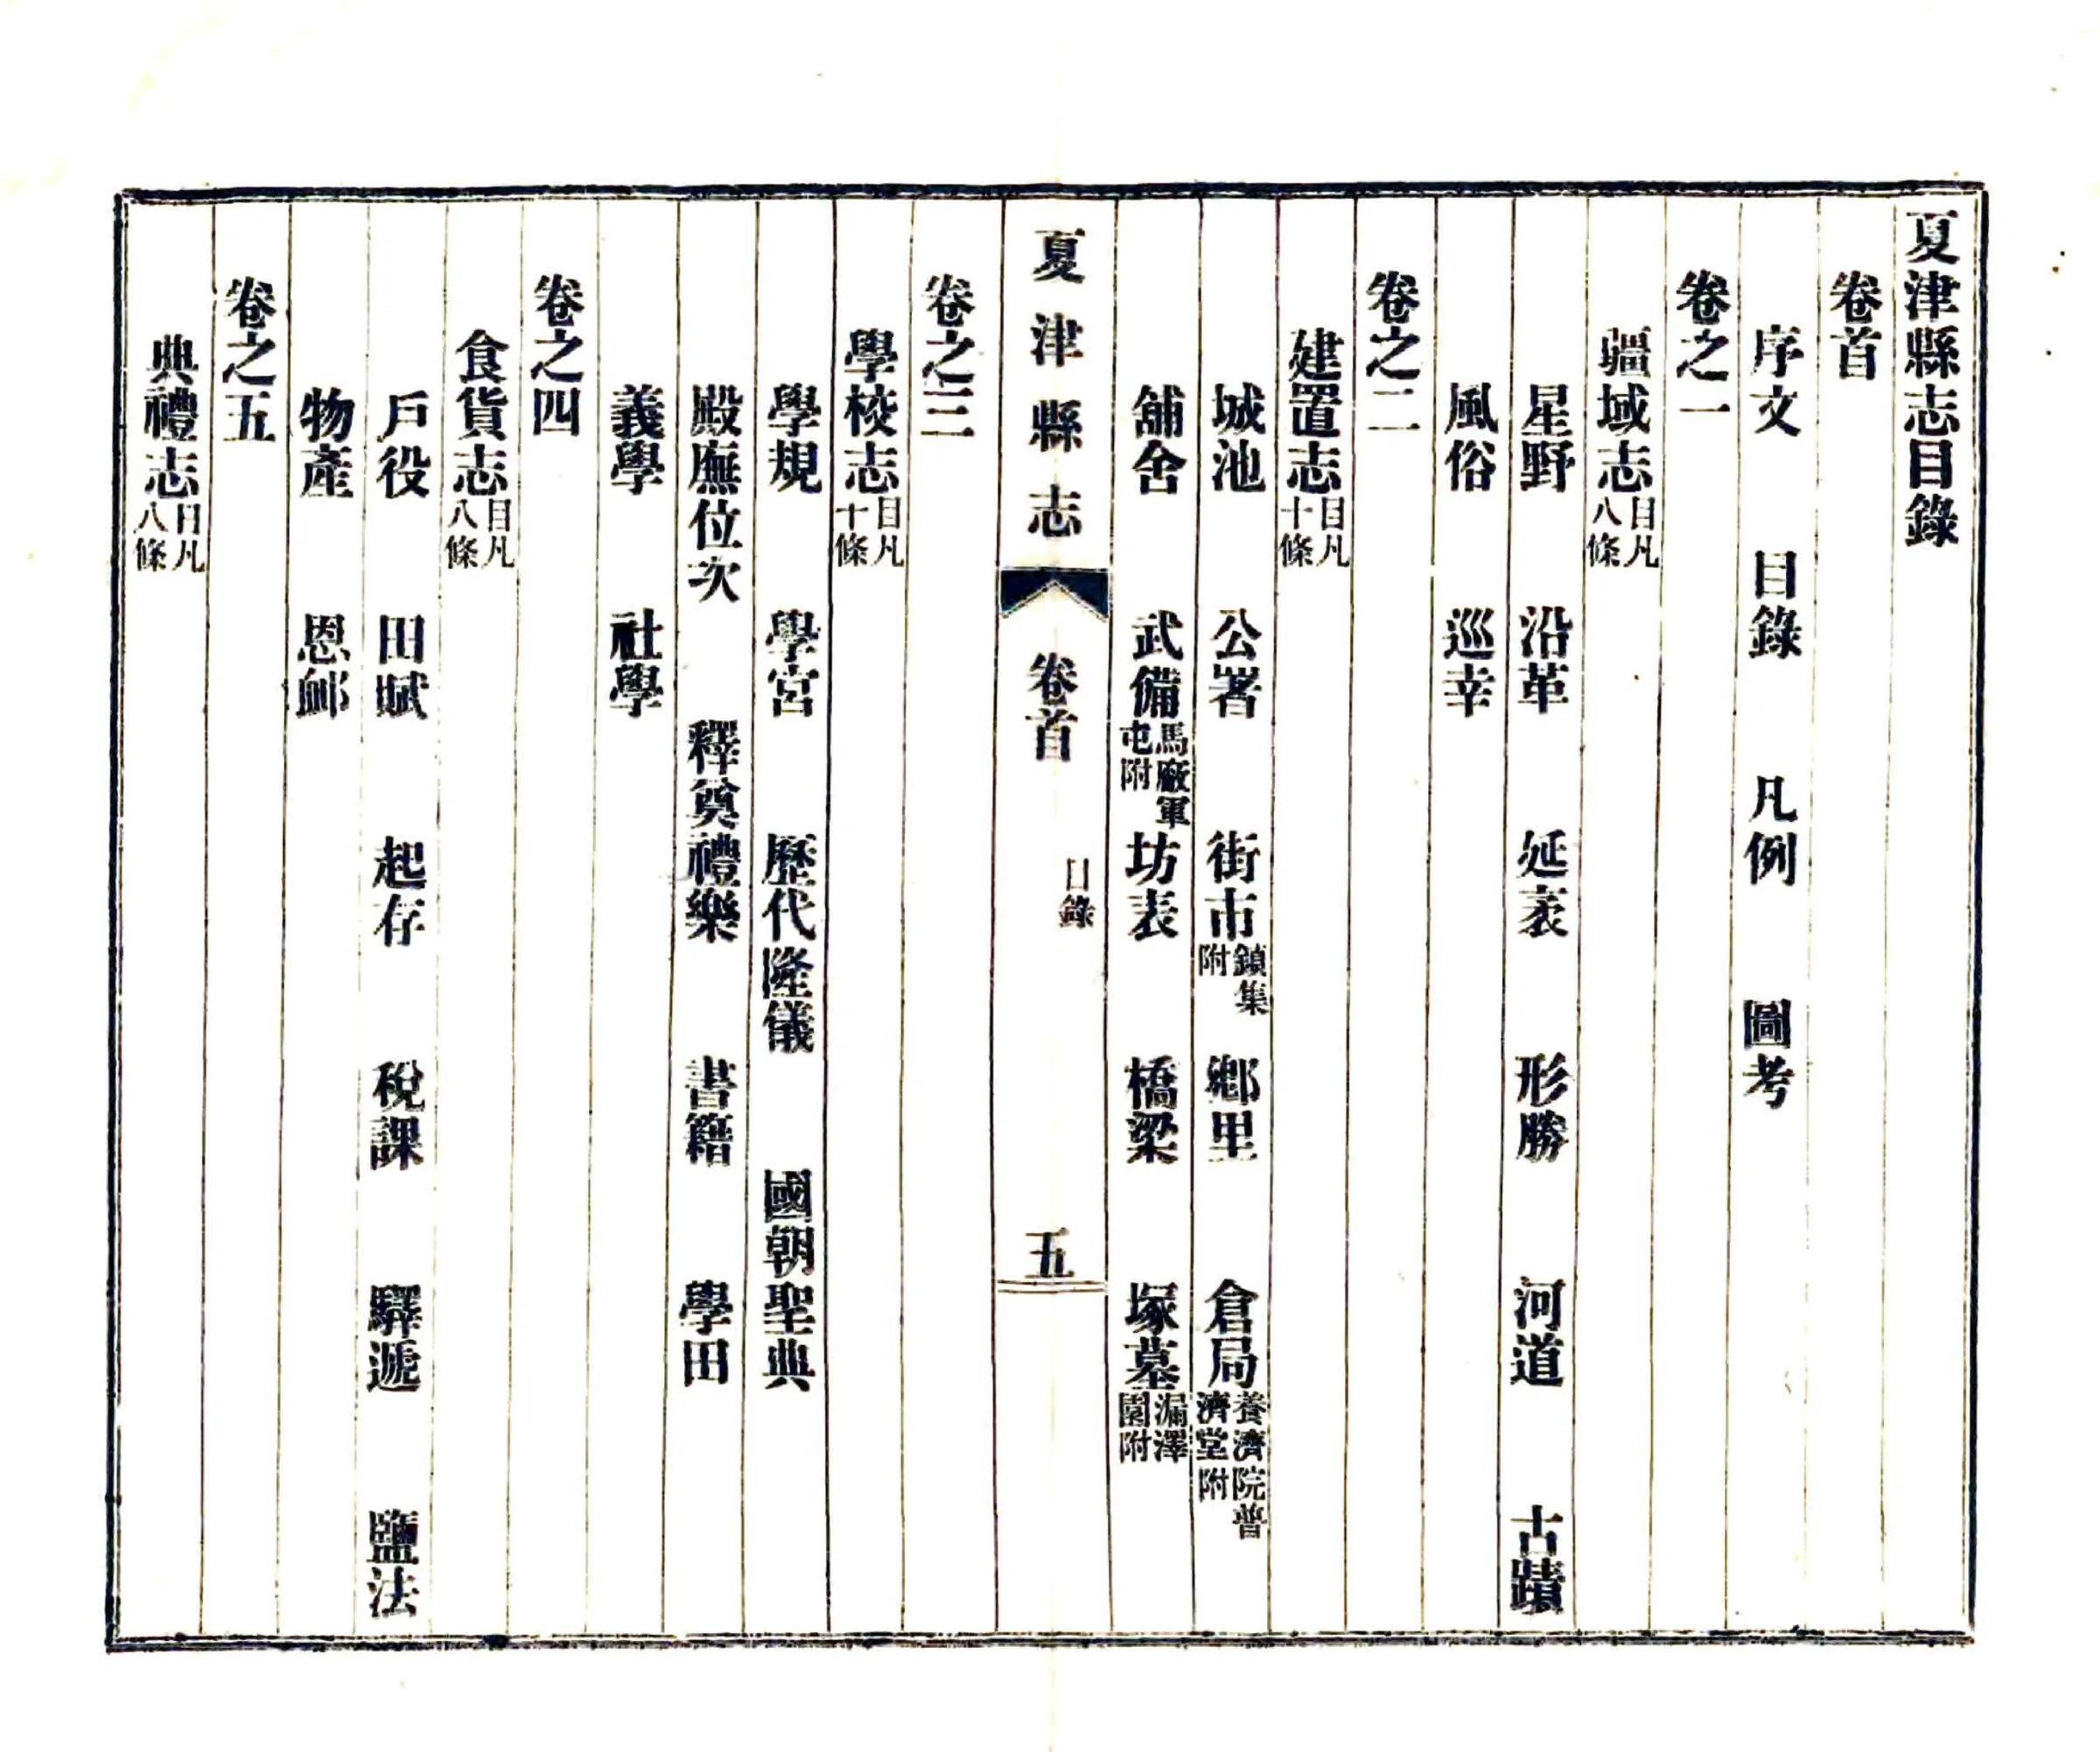 夏津縣志目錄
卷首
序文　目錄　凡例　圖考
卷之一
疆域志目凡八條
星野　沿革　延袤　形勝　河道　古蹟
風俗　巡幸
卷之二
建置志目凡十條
城池　公署　街市鎮集附　鄉里　倉局養濟院普濟堂附
舖舍　武備馬廠軍屯附　坊表　橋梁　塚墓漏澤園附
夏津縣志　卷首　目錄　五
卷之三
學校志目凡十條
學規　學宮　歷代隆儀　國朝聖典
殿廡位次　釋奠禮樂　書籍　學田
義學　社學
卷之四
食貨志目凡八條
戶役　田賦　起存　稅課　驛遞　鹽法
物產　恩卹
卷之五
典禮志目凡八條